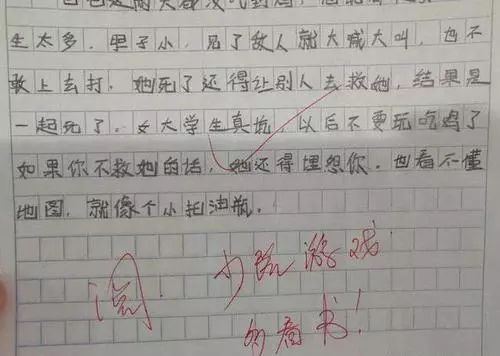 生太多，胆子小，见了敌人就大喊大叫，也不
敢上去打，她死了还得让别人去救她，结果是
一起死了，女大学生真坑，以后不要玩吃鸡了
如果你不救她的话，她还得埋怨你，也看不懂
地图，就像个小拖油瓶。
阅 少玩游戏
多看书！